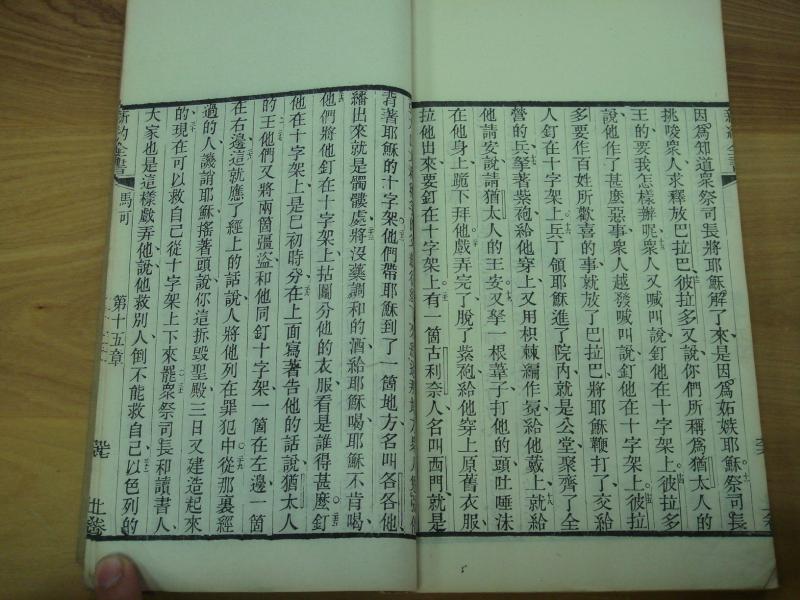 因爲知道衆祭司長將耶穌解了來是因爲妬嫉耶穌祭司長
挑唆衆人求釋放巴拉巴彼拉多又說你們所稱爲猶太人的
王的要我怎樣辦呢衆人又喊叫說釘他在十字架上彼拉多
說他作了甚麼惡事衆人越發喊叫說釘他在十字架上彼拉
多要作百姓所歡喜的事就放了巴拉巴將耶穌鞭打了交給
人釘在十字架上兵丁領耶穌進了院內就是公堂聚齊了全
營的兵拏著紫袍給他穿上又用枳棘編作冕給他戴上就給
他請安說請猶太人的王安又拏一根葦子打他的頭吐唾沫
在他身上跪下拜他戲弄完了脫了紫袍給他穿上原舊衣服
拉他出來要釘在十字架上有一箇古利奈人名叫西門就是
背著耶穌的十字架他們帶耶穌到了一箇地方名叫各各他
繙出來就是髑髏處將沒藥調和的酒給耶穌喝耶穌不肯喝
他們將他釘在十字架上拈鬮分他的衣服看是誰得甚麼釘
他在十字架上是巳初時分在上面寫著告他的話說猶太人
的王他們又將兩箇强盜和他同釘十字架一箇在左邊一箇
在右邊這就應了經上的話說人將他列在罪犯中從那裏經
過的人譏誚耶穌搖著頭說你這拆毀聖殿三日又建造起來
的現在可以救自己從十字架上下來罷衆祭司長和讀書人
大家也是這樣戲弄他說他救別人倒不能救自己以色列的
新約全書 馬可 第十五章